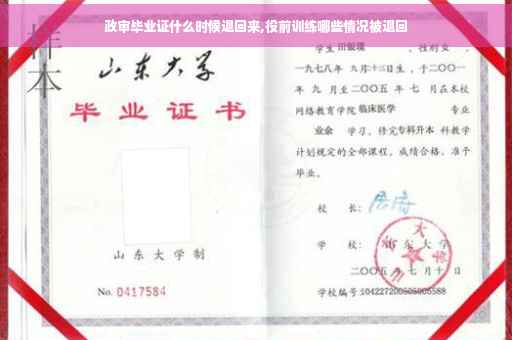 政审毕业证什么时候退回来,役前训练哪些情况被退回
样本
山东大学
毕业证书
山东大学制
No. 0417584
学生 田银環 ，性别女，
一九七八年 九月十三日生，于二〇〇一
年 九 月至二〇〇五 年 七 月在本校
网络教育学院 临床医学 专业
业余 学习，修完专科升本 科教学
计划规定的全部课程，成绩合格，准予
毕业。
校 长：
学 校：山东大学
二〇〇五 年 七 月 十 日
学校编号:104227200505005588